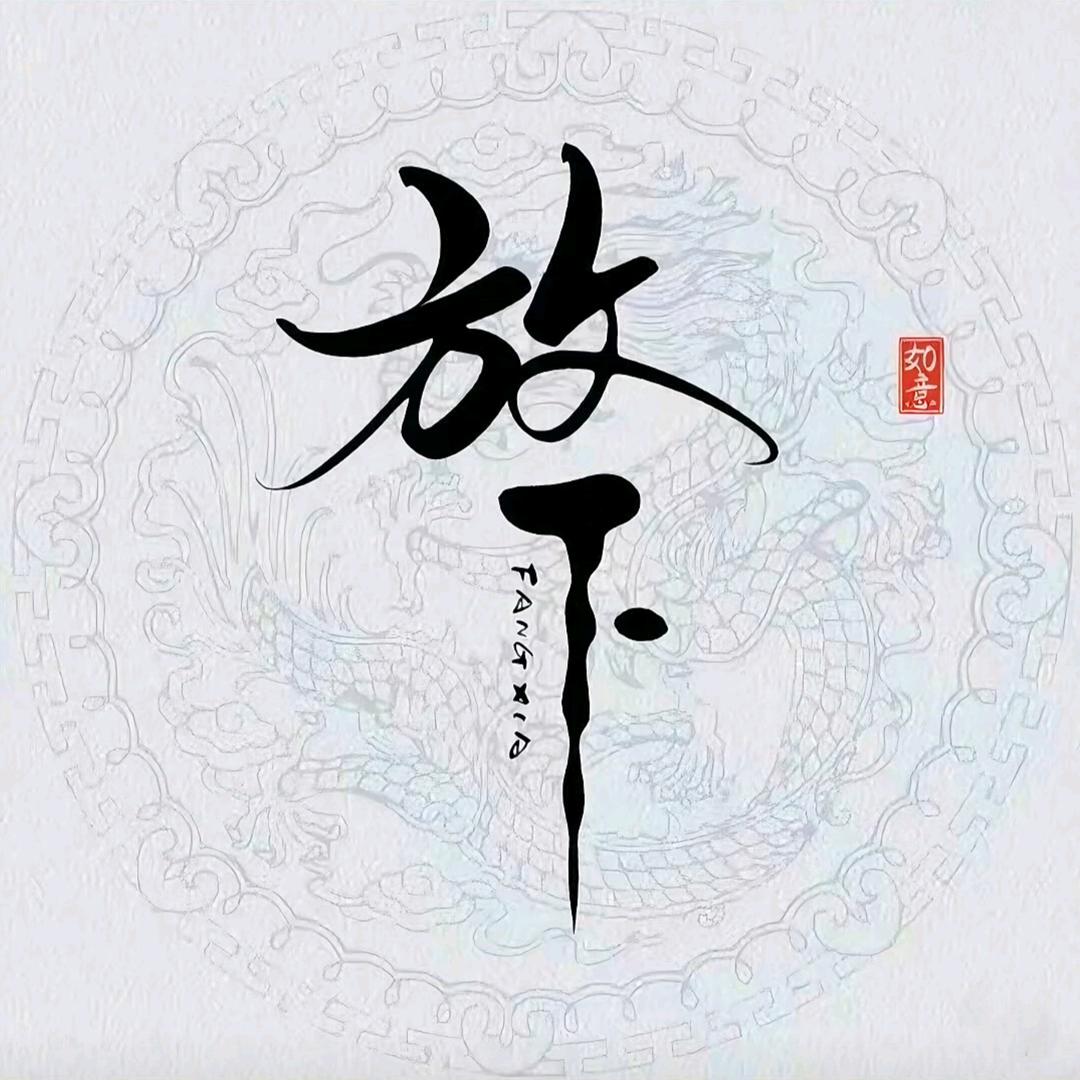 放下
FANGXIA
如意